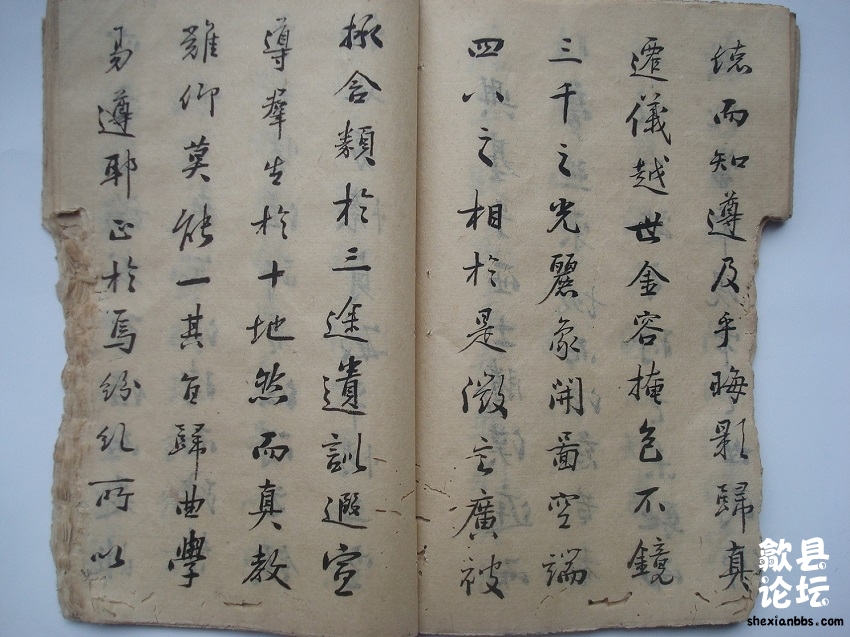 德而知遵及乎晦影歸真
遷儀越世金容掩色不鏡
三千之光麗象開圖空端
四八之相於是微言廣被
拯含類於三途遺訓遐宣
導羣生於十地然而真教
難仰莫能一其旨歸曲學
易遵耶正於焉紛糺所以
歙县
论坛
shexianbbs.com